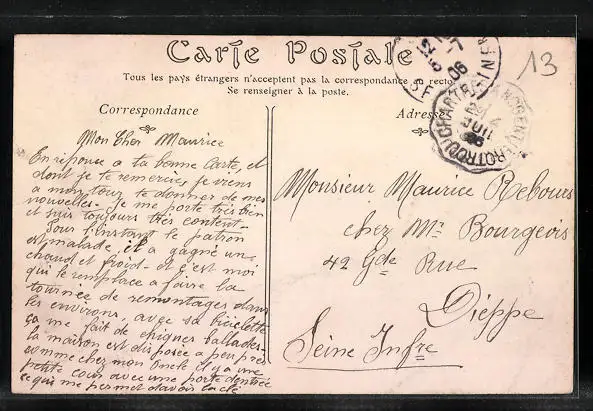 Carte Postale
Tous les pays étrangers n'acceptent pas la correspondance au recto
Se renseigner à la poste.
13
Correspondance
Mon Cher Maurice
En réponse a ta bonne Carte, et
dont je te remercie, je viens
a mon tour te donner de mes
nouvelles. Je me porte très bien
et suis toujours très content.
Pour l'instant le patron
est malade, il a gagné un
chaud et froid. et c'est moi
qui le remplace a faire la
tournée de remontages dans
les environs, avec sa bicyclette
ça me fait de chiques ballades.
la maison est disposée a peu près
comme chez mon Oncle il y a une
petite cour avec une porte d'entrée
ce qui me permet d'avoir la clé
Adresse
Monsieur Maurice Rebours
chez Mr Bourgeois
42 Gde Rue
Dieppe
Seine Infre
NOGENT-LE-ROTROU
JUIL
06